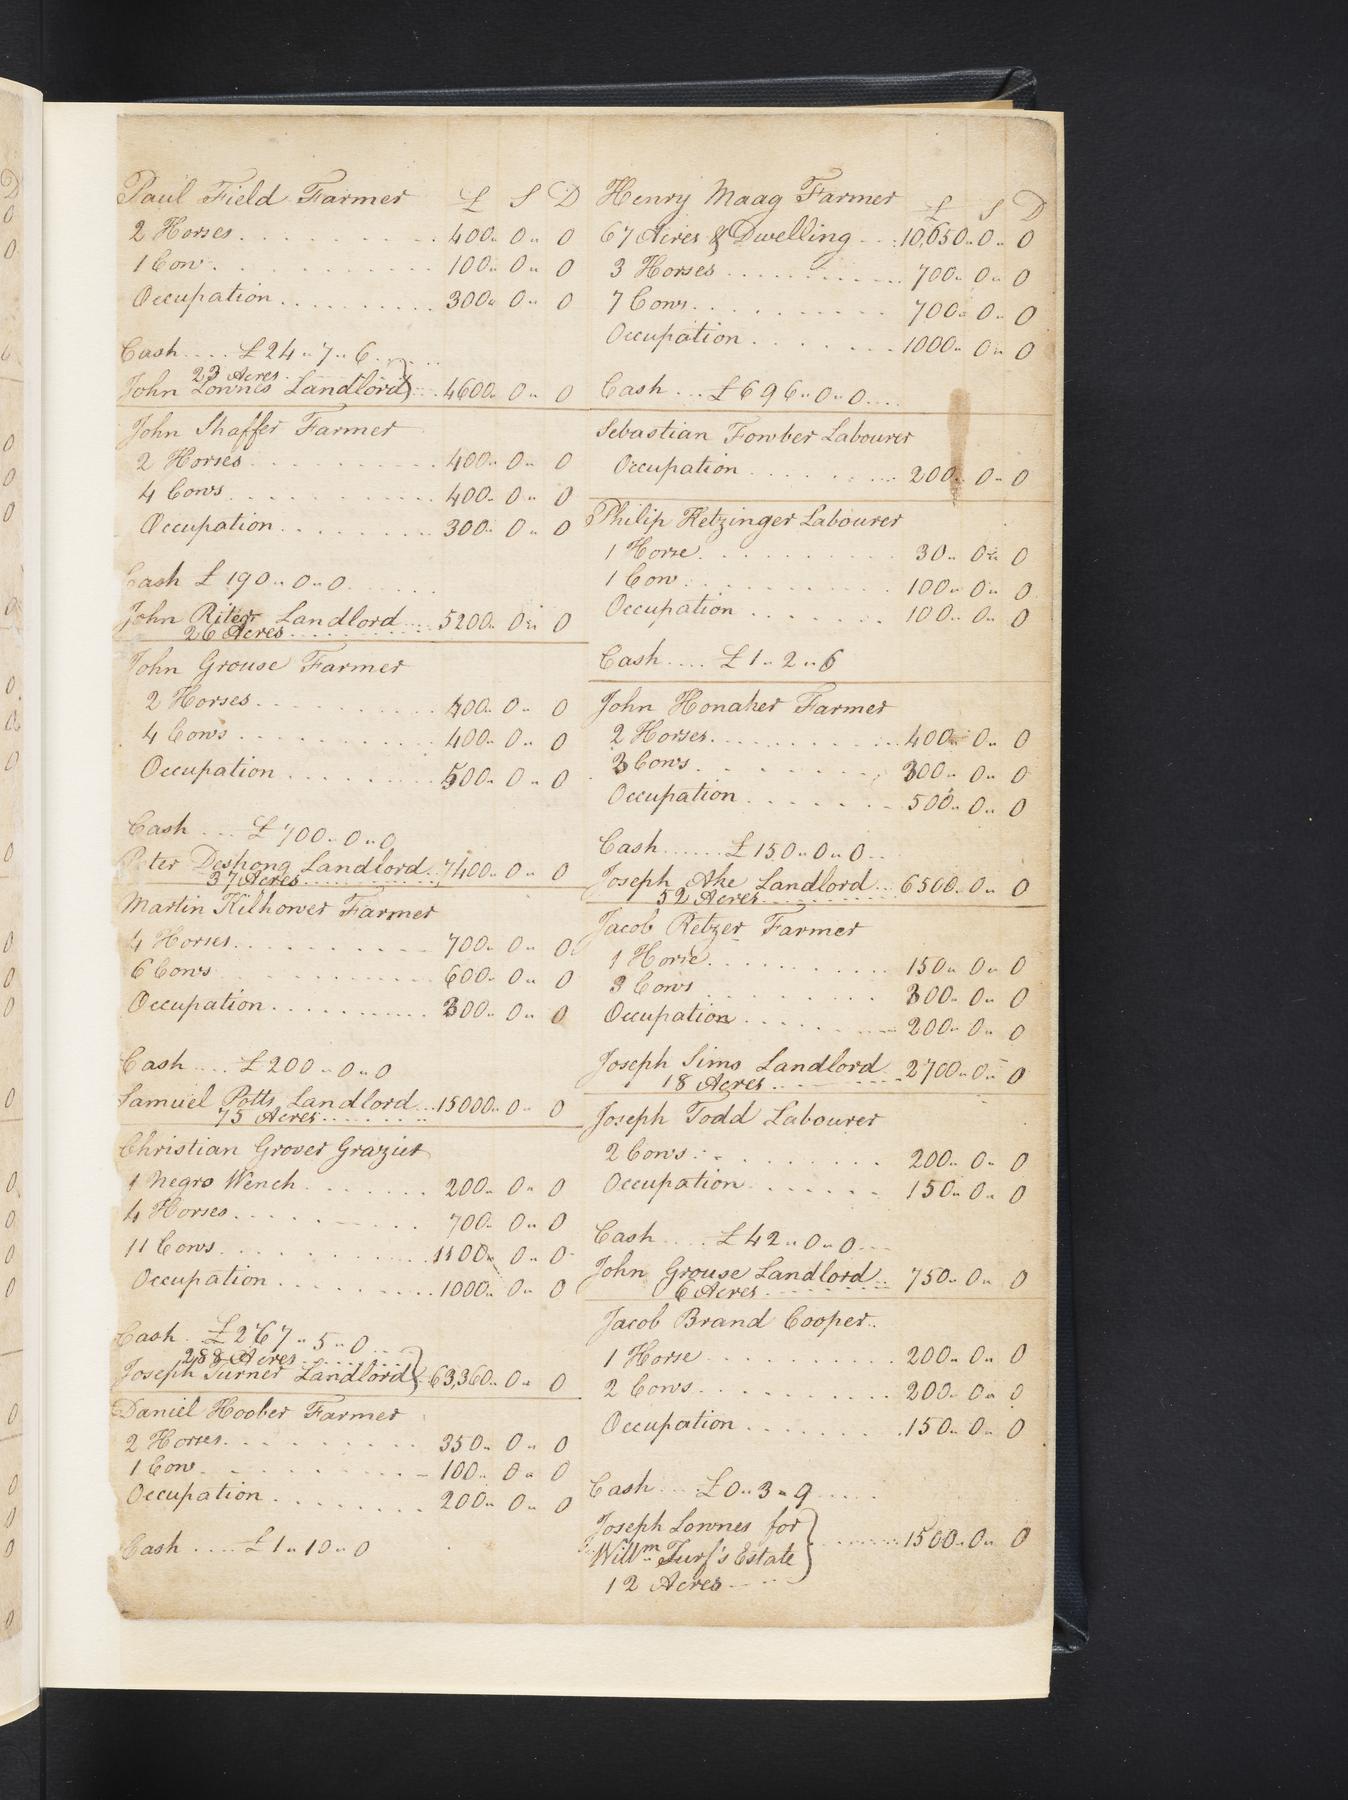 Paul Field Farmer £ S D
2 Horses 400 .. 0 .. 0
1 Cow 100 .. 0 .. 0
Occupation 300 .. 0 .. 0
Cash .... £24 .. 7 .. 6
23 Acres
John Lownes Landlord 4600 .. 0 .. 0
John Shaffer Farmer
2 Horses 400 .. 0 .. 0
4 Cows 400 .. 0 .. 0
Occupation 300 .. 0 .. 0
Cash £190 .. 0 .. 0
John Riter Landlord 5200 .. 0 .. 0
26 Acres
John Grouse Farmer
2 Horses 400 .. 0 .. 0
4 Cows 400 .. 0 .. 0
Occupation 500 .. 0 .. 0
Cash .... £700 .. 0 .. 0
Peter Deshong Landlord 7400 .. 0 .. 0
37 Acres
Martin Kilhower Farmer
4 Horses 700 .. 0 .. 0
6 Cows 600 .. 0 .. 0
Occupation 300 .. 0 .. 0
Cash .... £200 .. 0 .. 0
Samuel Potts Landlord 15000 .. 0 .. 0
75 Acres
Christian Grover Grazier
1 Negro Wench 200 .. 0 .. 0
4 Horses 700 .. 0 .. 0
11 Cows 1100 .. 0 .. 0
Occupation 1000 .. 0 .. 0
Cash . £267 .. 5 .. 0
288 Acres
Joseph Turner Landlord 63,360 .. 0 .. 0
Daniel Hoober Farmer
2 Horses 350 .. 0 .. 0
1 Cow 100 .. 0 .. 0
Occupation 200 .. 0 .. 0
Cash .... £1 .. 10 .. 0
Henry Maag Farmer £ S D
67 Acres & Dwelling 10,650 .. 0 .. 0
3 Horses 700 .. 0 .. 0
7 Cows 700 .. 0 .. 0
Occupation 1000 .. 0 .. 0
Cash ... £696 .. 0 .. 0
Sebastian Fowber Labourer
Occupation 200 .. 0 .. 0
Philip Hetzinger Labourer
1 Horse 30 .. 0 .. 0
1 Cow 100 .. 0 .. 0
Occupation 100 .. 0 .. 0
Cash .... £1 .. 2 .. 6
John Honaker Farmer
2 Horses 400 .. 0 .. 0
3 Cows 300 .. 0 .. 0
Occupation 500 .. 0 .. 0
Cash ...... £150 .. 0 .. 0
Joseph Ake Landlord 6500 .. 0 .. 0
52 Acres
Jacob Retzer Farmer
1 Horse 150 .. 0 .. 0
3 Cows 300 .. 0 .. 0
Occupation 200 .. 0 .. 0
Joseph Sims Landlord 2700 .. 0 .. 0
18 Acres
Joseph Todd Labourer
2 Cows 200 .. 0 .. 0
Occupation 150 .. 0 .. 0
Cash .... £42 .. 0 .. 0
John Grouse Landlord 750 .. 0 .. 0
6 Acres
Jacob Brand Cooper
1 Horse 200 .. 0 .. 0
2 Cows 200 .. 0 .. 0
Occupation 150 .. 0 .. 0
Cash .... £0 .. 3 .. 9
Joseph Lownes for
Willm Turf's Estate 1500 .. 0 .. 0
12 Acres